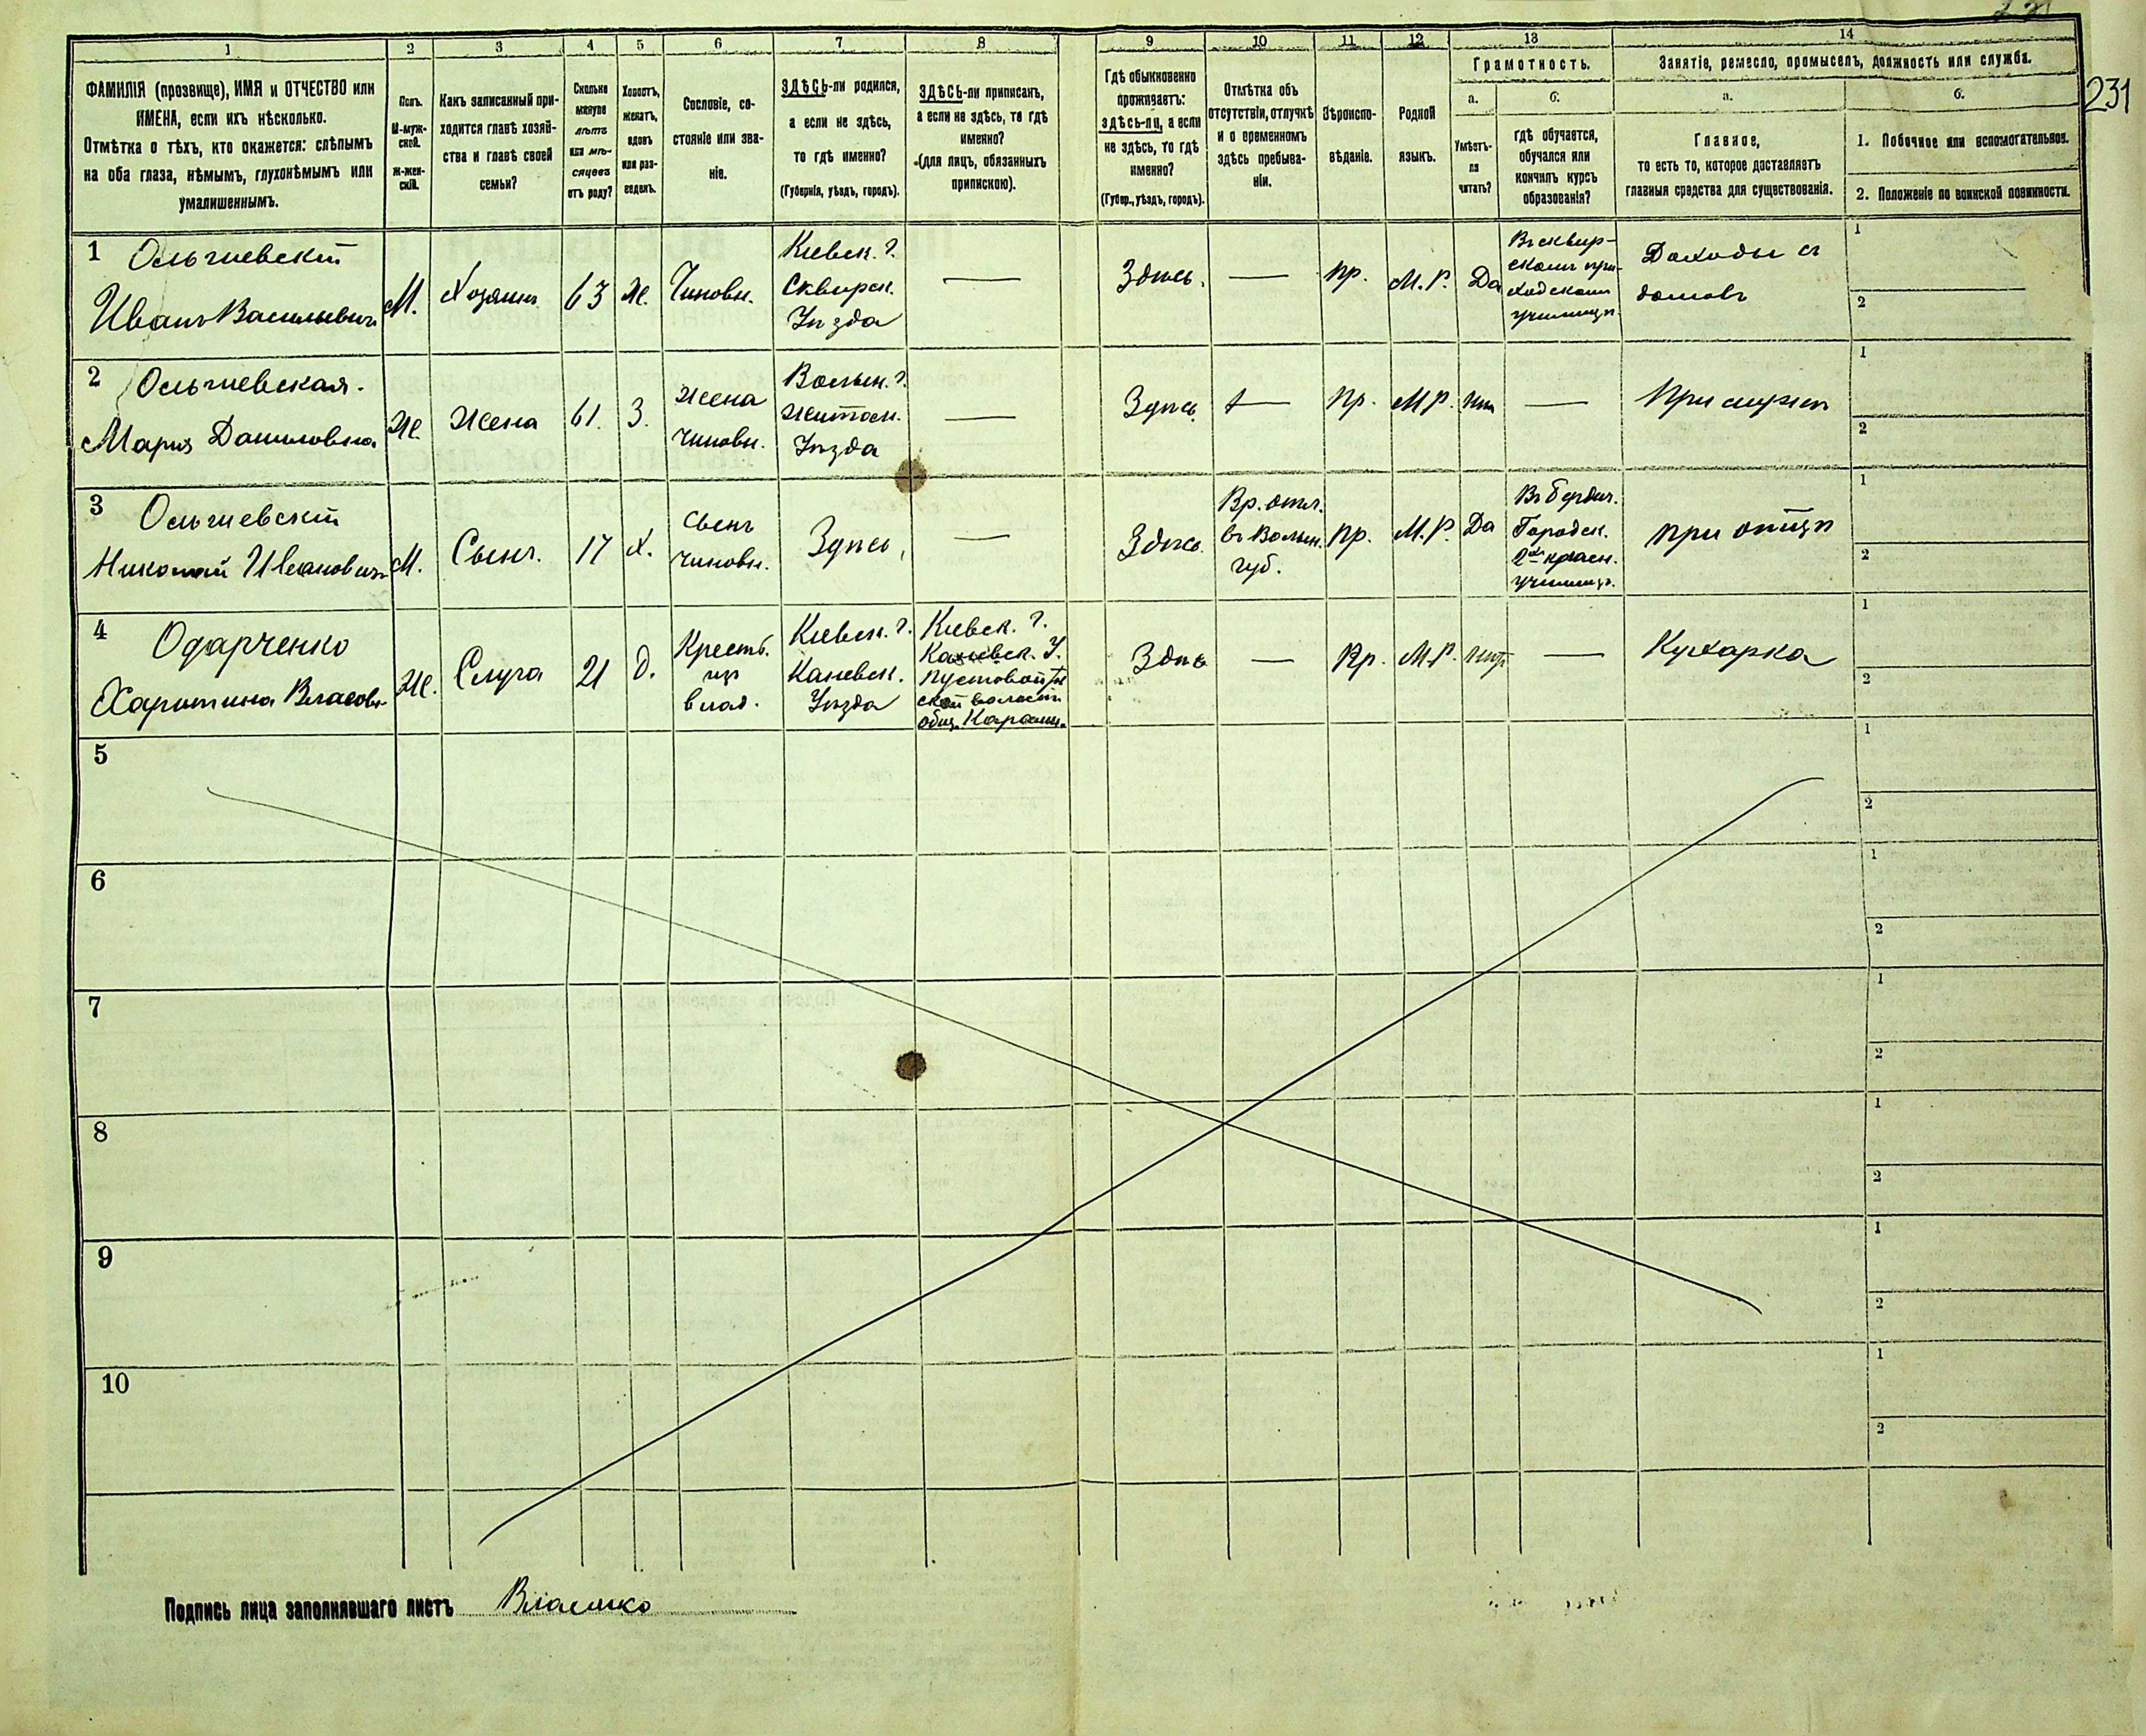 231
1 2 3 4 5 6 7 8 9 10 11 12 13 14
ФАМИЛІЯ (прозвище), ИМЯ и ОТЧЕСТВО или
ИМЕНА, если ихъ нѣсколько.
Отмѣтка о тѣхъ, кто окажется: слѣпымъ
на оба глаза, нѣмымъ, глухонѣмымъ или
умалишеннымъ.
Полъ.
М-муж-
ской.
Ж-жен-
скій.
Какъ записанный при-
ходится главѣ хозяй-
ства и главѣ своей
семьи?
Сколько
минуло
лѣтъ
или мѣ-
сяцевъ
отъ роду?
Холостъ,
женатъ,
вдовъ
или раз-
веденъ.
Сословіе, со-
стояніе или зва-
ніе.
ЗДѢСЬ-ли родился,
а если не здѣсь,
то гдѣ именно?
(Губернія, уѣздъ, городъ).
ЗДѢСЬ-ли приписанъ,
а если не здѣсь, то гдѣ
именно?
(для лицъ, обязанныхъ
припискою).
Гдѣ обыкновенно
проживаетъ:
здѣсь-ли, а если
не здѣсь, то гдѣ
именно?
(Губер., уѣздъ, городъ).
Отмѣтка объ
отсутствіи, отлучкѣ
и о временномъ
здѣсь пребыва-
ніи.
Вѣроиспо-
вѣданіе.
Родной
языкъ.
Грамотность.
а.
Умѣетъ-
ли
читать?
б.
гдѣ обучается,
обучался или
кончилъ курсъ
образованія?
Занятіе, ремесло, промыселъ, должность или служба.
а.
Главное,
то есть то, которое доставляетъ
главныя средства для существованія.
б.
1. Побочное или вспомогательное.
2. Положеніе по воинской повинности.
1
Ольшевскій
Иванъ Васильевичъ
М.
Хозяинъ
63
Ж.
Чиновн.
Кіевск. г.
Сквирск.
Уѣзда
—
Здѣсь.
—
Пр.
М.Р.
Да
Въ сквир-
скомъ при-
ходскомъ
училищѣ
Доходы съ
домовъ
1
2
2
Ольшевская.
Марія Даниловна
Ж.
Жена
61.
З.
Жена
чиновн.
Волын. г.
Житом.
Уѣзда
—
Здѣсь
—
Пр.
М.Р.
Нѣт
—
При мужѣ
1
2
3
Ольшевскій
Николай Ивановичъ
М.
Сынъ.
17
Х.
Сынъ
чиновн.
Здѣсь,
—
Здѣсь.
Вр. отл.
въ Волын.
губ.
Пр.
М.Р.
Да
Въ Бердич.
Городск.
2хъ класн.
училищѣ.
при отцѣ
1
2
4
Одарченко
Харитина Власовн.
Ж.
Слуга
21
Д.
Крестъ.
изъ
влад.
Кіевск. г.
Каневск.
Уѣзда
Кіевск. г.
Каневск. У.
ской волости
общ.
Здѣсь
—
Пр.
М.Р.
Нѣт
—
Кухарка
1
2
5
1
2
6
1
2
7
1
2
8
1
2
9
1
2
10
1
2
Подпись лица заполнявшаго листъ